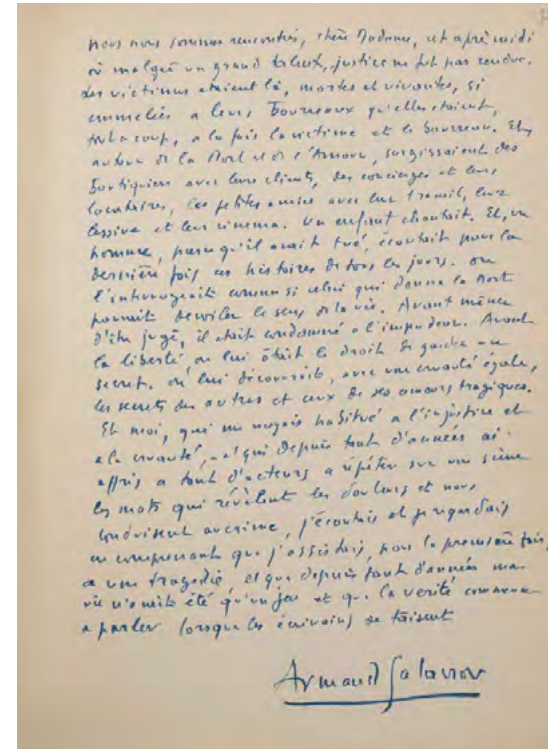 Nous nous sommes rencontrés, chère Madame, cet après midi
où malgré un grand talent, justice ne fut pas rendue.
Les victimes étaient là, mortes et vivantes, si
emmelées a leurs bourreaux qu'elles étaient,
tout a coup, a la fois la victime et le bourreau. Et,
autour de la Mort et de l'Amour, surgissaient des
boutiquiers avec leurs clients, des concierges et leurs
locataires, les petites amies avec leur travail, leur
lessive et leur cinema. Un enfant chantait. Et, un
homme, parce qu'il avait tué, écoutait pour la
dernière fois ces histoires de tous les jours. On
l'interrogeait comme si celui qui donne la Mort
pouvait dévoiler le sens de la vie. Avant même
d'être jugé, il était condamné a l'impudeur. Avant
la liberté on lui ôtait le droit de garder un
secret. On lui découvrait, avec une cruauté égale,
les secrets des autres et ceux de ses amours tragiques.
Et moi, qui me croyais habitué a l'injustice et
a la cruauté, et qui depuis tant d'années ai
appris a tant d'acteurs a répéter sur une scène
les mots qui révèlent les douleurs et nous
conduisent au crime, j'écoutais et je regardais
en comprenant que j'assistais, pour la première fois,
a une tragédie, et que depuis tant d'années ma
vie n'avait été qu'un jeu et que la vérité commence
a parler lorsque les écrivains se taisent
Armand Salacrou